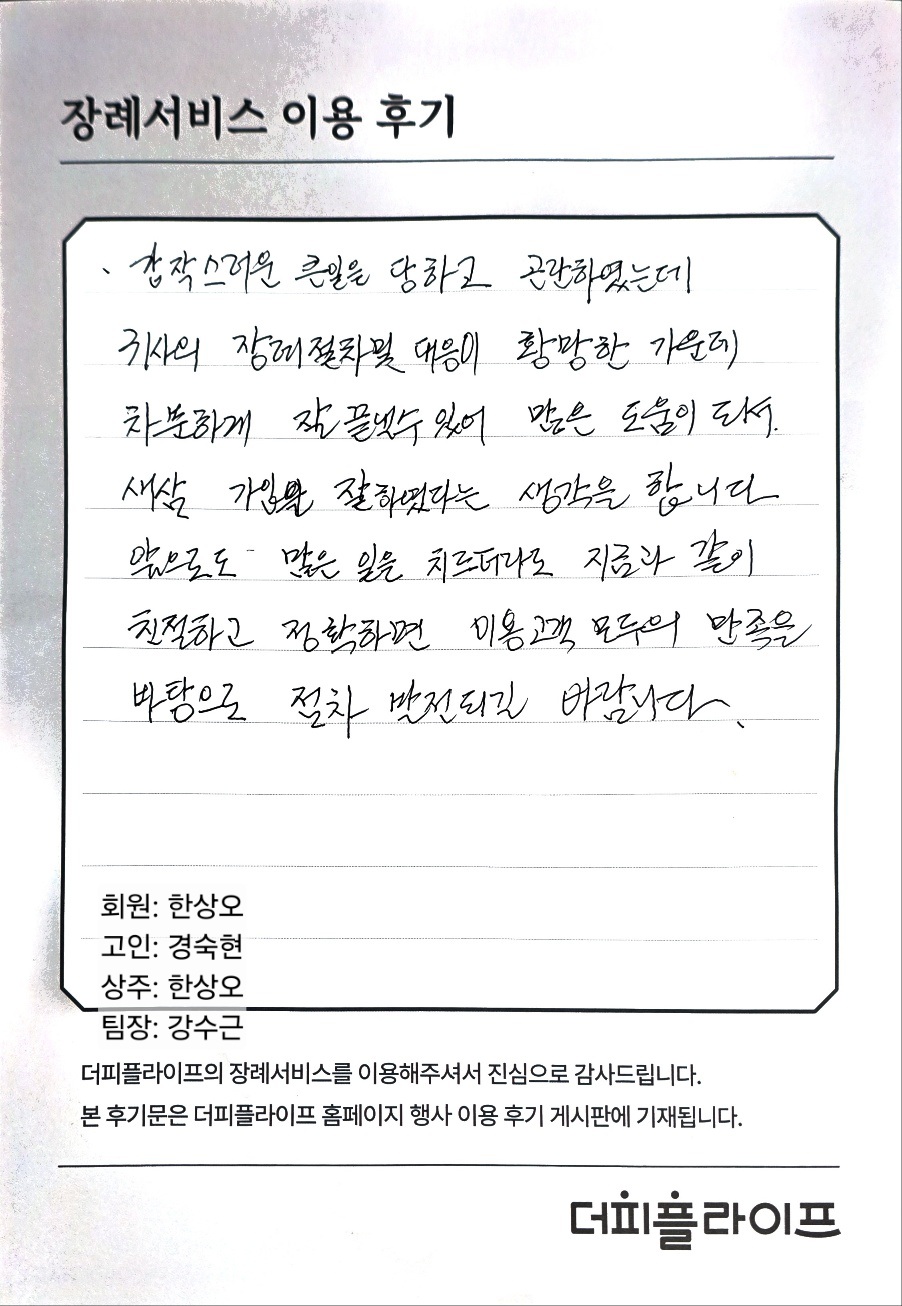 장례서비스 이용 후기
갑작스러운 큰일을 당하고 곤란하였는데
귀사의 장례절차및 대응이 황망한 가운데
차분하게 잘 끝낼수 있어 많은 도움이 되서.
새삼 가입을 잘하였다는 생각을 합니다
앞으로도 많은 일을 치르더라도 지금과 같이
친절하고 정확하면 이용고객 모두의 만족을
바탕으로 절차 발전되길 바랍니다.
회원: 한상오
고인: 경숙현
상주: 한상오
팀장: 강수근
더피플라이프의 장례서비스를 이용해주셔서 진심으로 감사드립니다.
본 후기문은 더피플라이프 홈페이지 행사 이용 후기 게시판에 기재됩니다.
더피플라이프